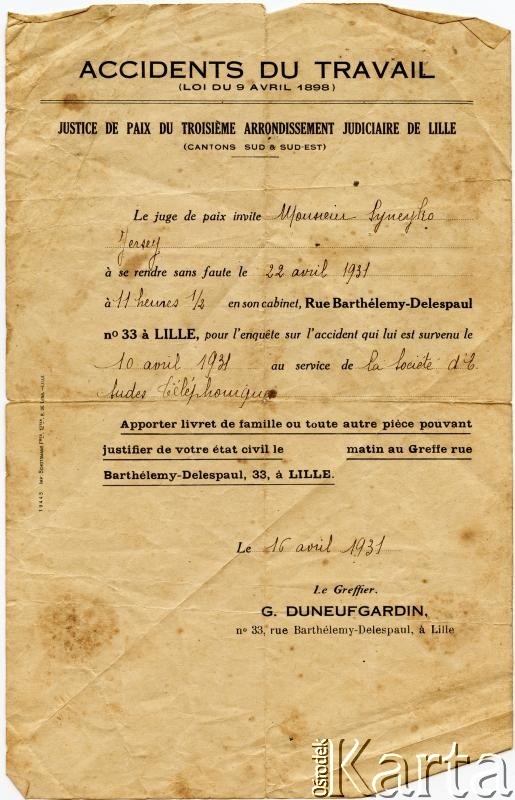 ACCIDENTS DU TRAVAIL
(LOI DU 9 AVRIL 1898)
JUSTICE DE PAIX DU TROISIÈME ARRONDISSEMENT JUDICIAIRE DE LILLE
(CANTONS SUD & SUD-EST)
Le juge de paix invite Monsieur Syneyko
Jersey
à se rendre sans faute le 22 avril 1931
à 11 heures 1/2 en son cabinet, Rue Barthélemy-Delespaul
nº 33 à LILLE, pour l'enquête sur l'accident qui lui est survenu le
10 avril 1931 au service de la Société d'E
tudes Téléphoniques
Apporter livret de famille ou toute autre pièce pouvant
justifier de votre état civil le matin au Greffe rue
Barthélemy-Delespaul, 33, à LILLE.
Le 16 avril 1931
Le Greffier.
G. DUNEUFGARDIN,
nº 33, rue Barthélemy-Delespaul, à Lille
Ośrodek
Karta